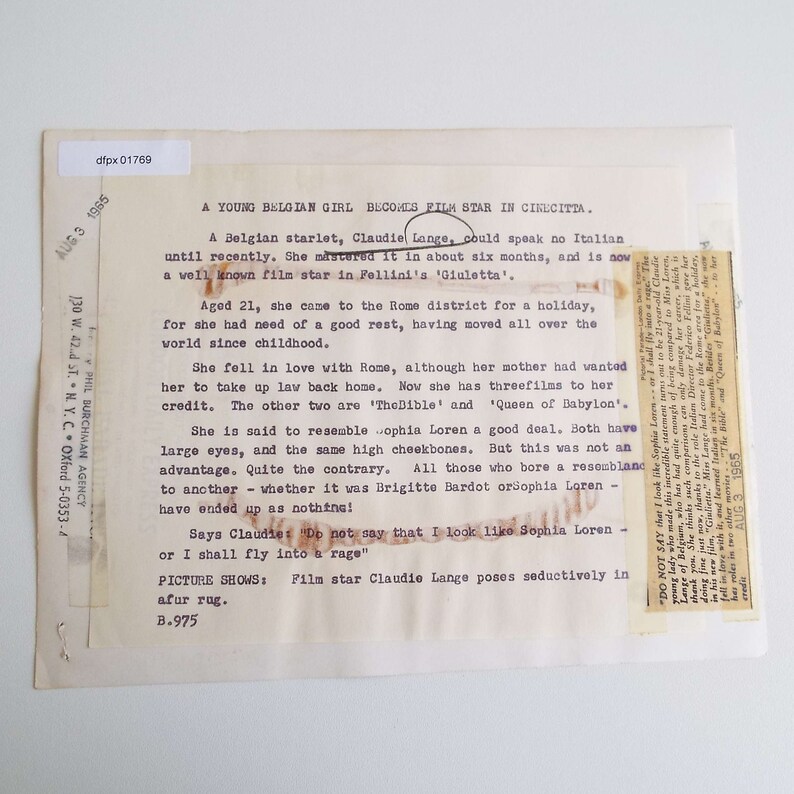 dfpx 01769
AUG 3 1965
A YOUNG BELGIAN GIRL BECOMES FILM STAR IN CINECITTA.
A Belgian starlet, Claudie Lange, could speak no Italian
until recently. She mastered it in about six months, and is now
a well known film star in Fellini's 'Giuletta'.
Aged 21, she came to the Rome district for a holiday,
for she had need of a good rest, having moved all over the
world since childhood.
She fell in love with Rome, although her mother had wanted
her to take up law back home. Now she has threefilms to her
credit. The other two are 'TheBible' and 'Queen of Babylon'.
She is said to resemble Sophia Loren a good deal. Both have
large eyes, and the same high cheekbones. But this was not an
advantage. Quite the contrary. All those who bore a resemblanc
to another - whether it was Brigitte Bardot orSophia Loren -
have ended up as nothing!
Says Claudie: "Do not say that I look like Sophia Loren -
or I shall fly into a rage"
PICTURE SHOWS: Film star Claudie Lange poses seductively in
afur rug.
B.975
PHIL BURCHMAN AGENCY
130 W. 42nd ST. • N. Y. C. • OXford 5-0353-4
Pictorial Parade—London Daily Express
"DO NOT SAY that I look like Sophia Loren -- or I shall fly into a rage." The
young lady who made this incredible statement turns out to be 21-year-old Claudie
Lange of Belgium, who has had quite enough of being compared to Miss Loren,
thank you. She thinks such comparisons can only damage her career, which is
doing fine just now, thanks to the role Italian Director Federico Fellini gave her
in his new film, "Giulietta." Miss Lange had come to the Rome area for a holiday,
fell in love with it, and learned Italian in six months. Besides "Giulietta," she now
has roles in two other movies -- "The Bible" and "Queen of Babylon" -- to her
credit
AUG 3 1965